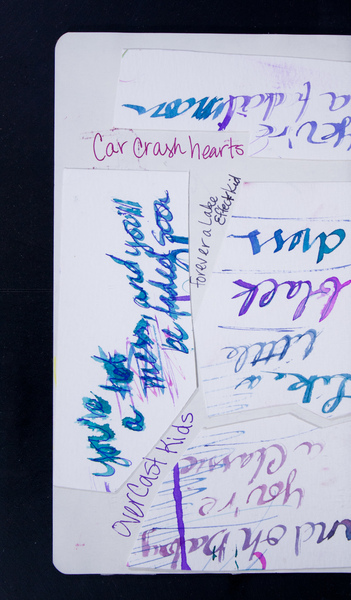 you're
a daydream
Car Crash hearts
Forever a Lake
Effect Kid
you're
a hot
mess, and you'll
be fading soon
Like a
little
black
dress
OverCast Kids
and oh baby
you're
a Classic